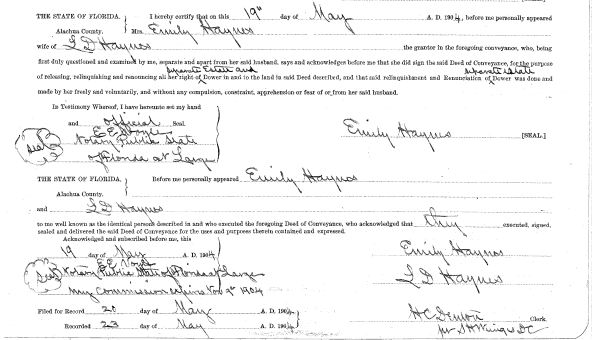 THE STATE OF FLORIDA, } I hereby certify that on this 19" day of May A. D. 1904, before me personally appeared
Alachua County. Mrs. Emily Haynes
wife of L D Haynes the grantor in the foregoing conveyance, who, being
first duly questioned and examined by me, separate and apart from her said husband, says and acknowledges before me that she did sign the said Deed of Conveyance, for the purpose
separate Estate and separate Estate
of releasing, relinquishing and renouncing all her right of Dower in and to the land in said Deed described, and that said relinquishment and Renunciation of Dower was done and
made by her freely and voluntarily, and without any compulsion, constraint, apprehension or fear of or from her said husband.
In Testimony Whereof, I have hereunto set my hand
and official Seal.
E E Voyle
Seal Notary Public State
of Florida at Large
Emily Haynes [SEAL.]
THE STATE OF FLORIDA, } Before me personally appeared Emily Haynes
Alachua County.
and L D Haynes
to me well known as the identical persons described in and who executed the foregoing Deed of Conveyance, who acknowledged that they executed, signed,
sealed and delivered the said Deed of Conveyance for the uses and purposes therein contained and expressed.
Acknowledged and subscribed before me, this
19 day of May A. D. 1904
E E Voyle
Seal Notary Public State of Florida at Large
My commission expires Nov 2nd 1904
Emily Haynes
L D Haynes
Filed for Record 20 day of May A. D. 1904
Recorded 23 day of May A. D. 1904
H C Denton Clerk.
per S H Wienges DC